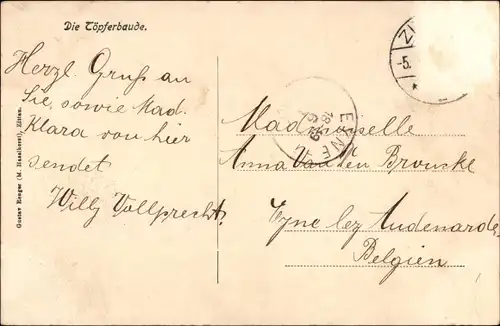 Die Töpferbaude.
Herzl. Gruß an
Sie, sowie Mad.
Klara von hier
sendet
Willy Vollprecht.
Gustav Rieger (M. Hasslhorst), Zittau.
ZI
-5.
EYNE
Mademoiselle
Anna Van den Broucke
Eyne lez Audenarde
Belgien